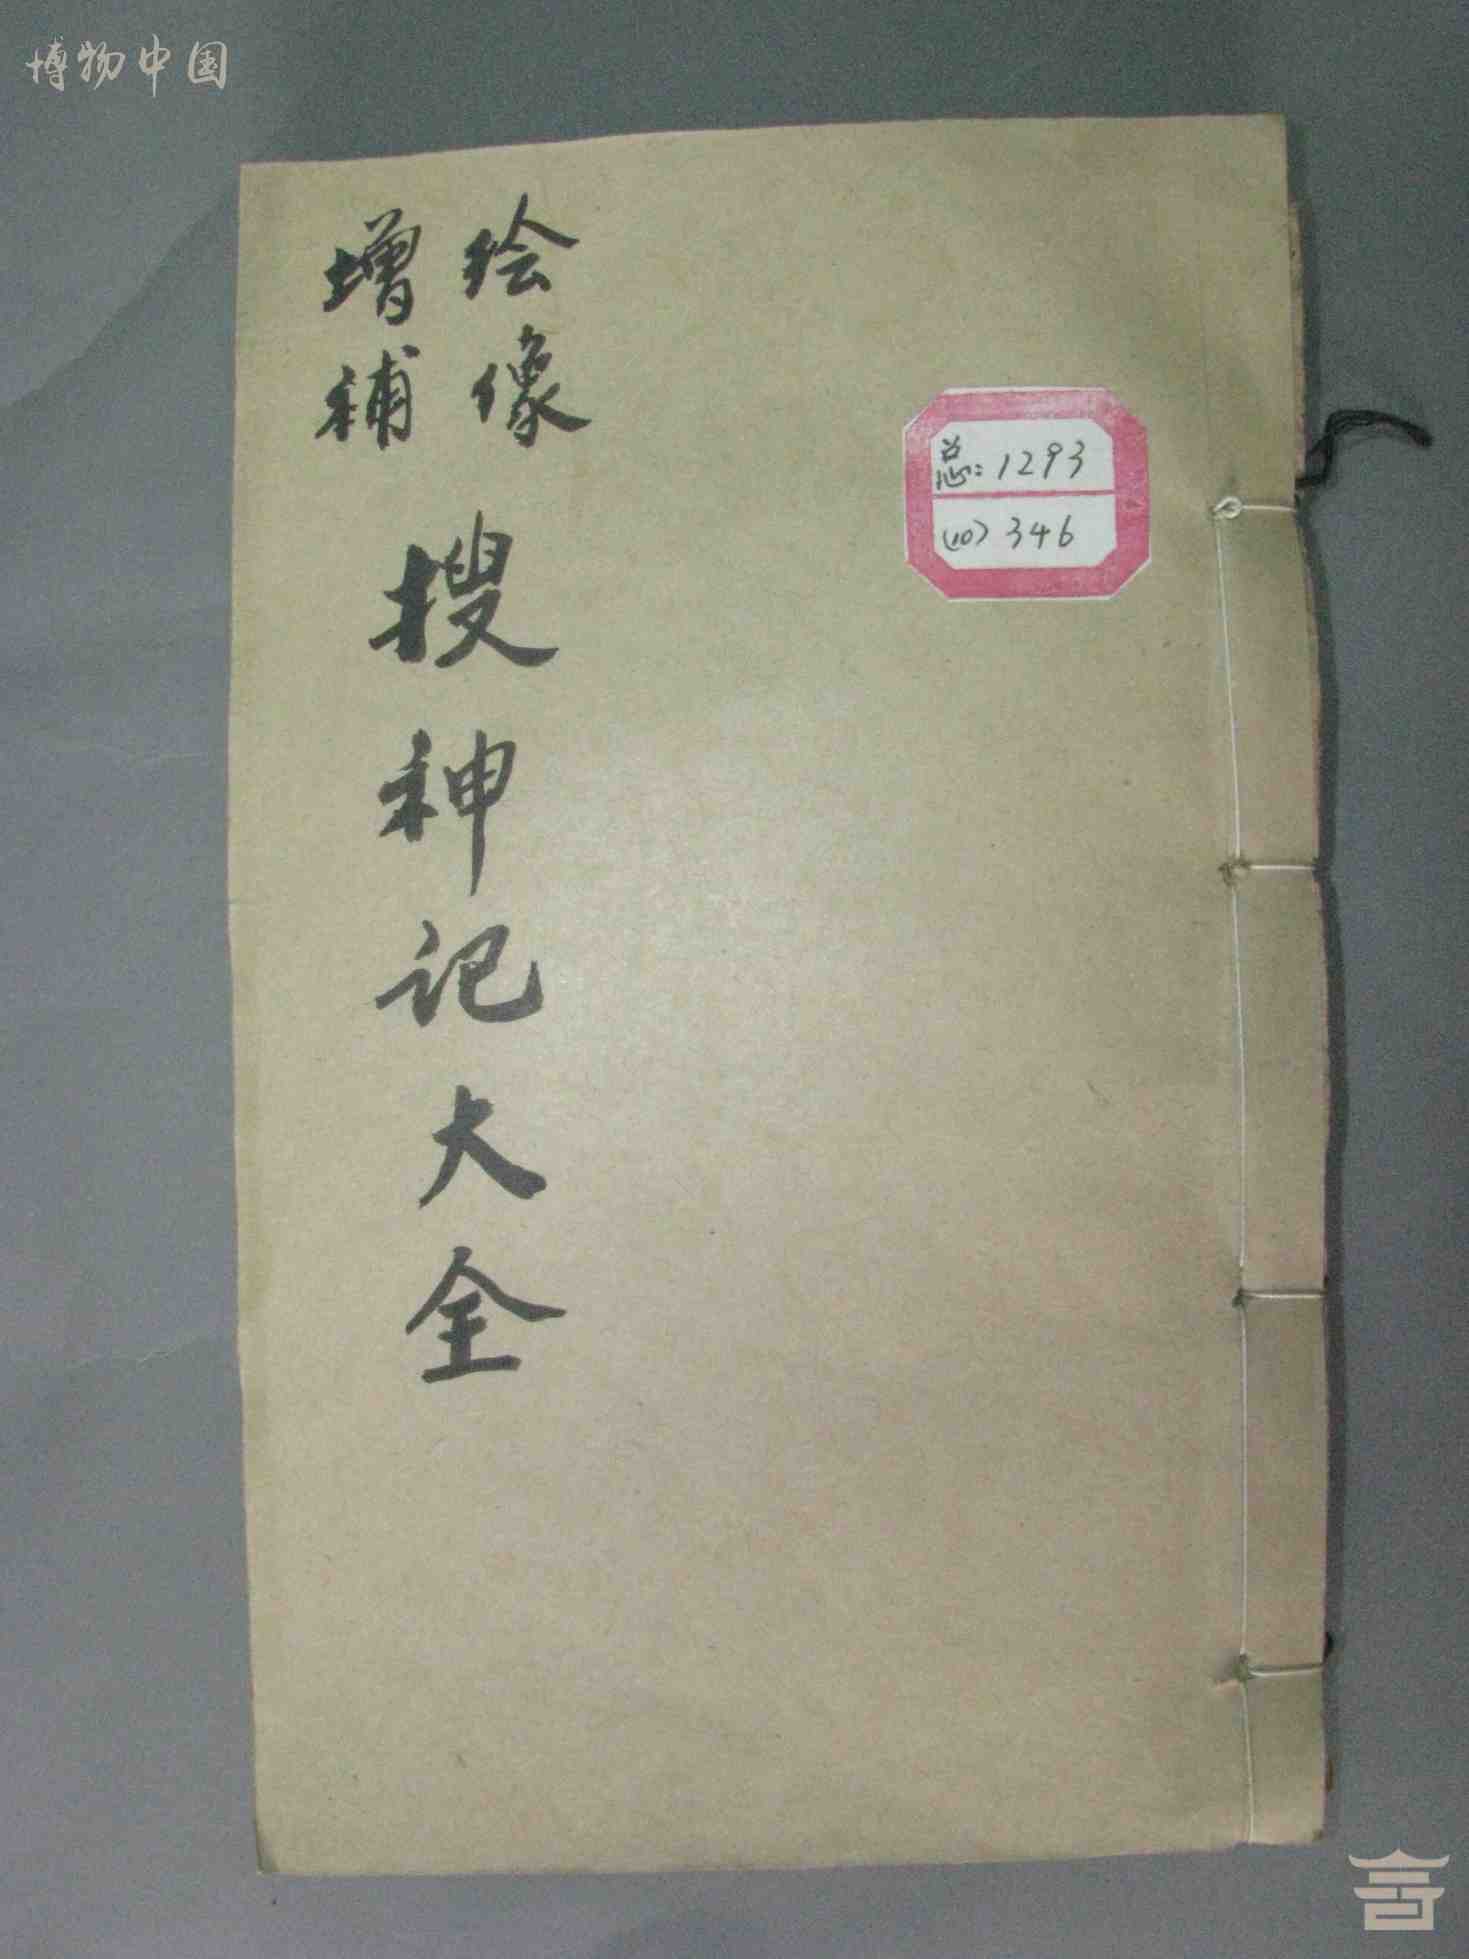 博物中国
绘像
增补
搜神记大全
总:1293
(10)346